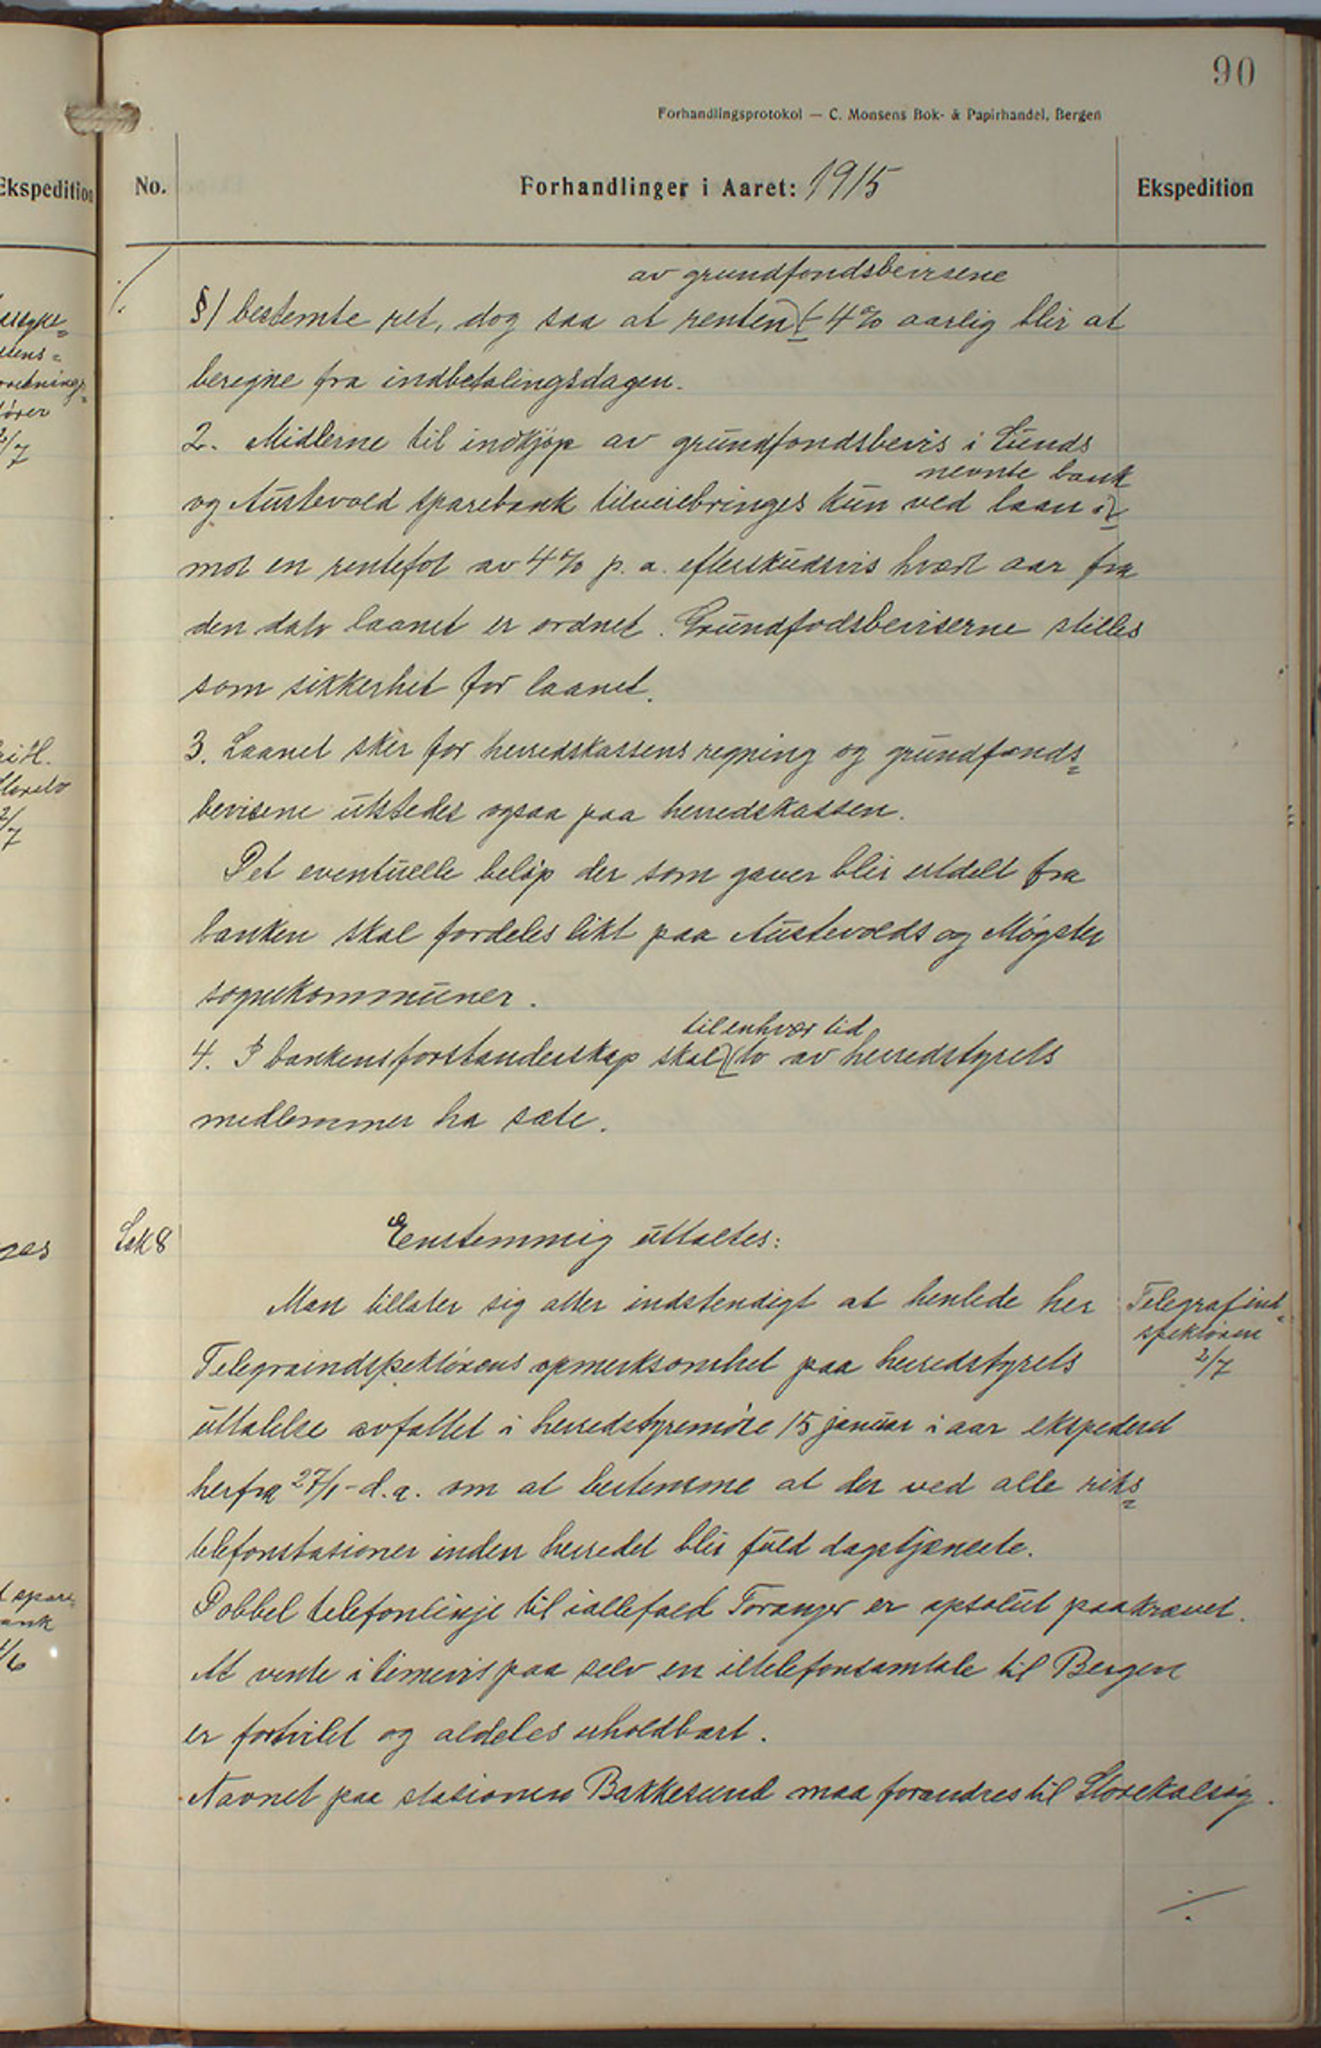 90
Forhandlingsprotokol — C. Monsens Bok- & Papirhandel, Bergen
Ekspedition
No.
Forhandlinger i Aaret: 1915
Ekspedition
av grundfondsbevisene
§1 bestemte ret, dog saa at renten 4% aarlig blir at
beregne fra indbetalingsdagen.
2. Midlerne til indkjøp av grundfondsbevis i Sunds
nevnte bank
og Austevold sparebank tilveiebringes kun ved laan i
mot en rentefot av 4% p. a. efterskudsvis hvert aar fra
den dato laanet er ordnet. Grundfodsbeviserne stilles
som sikkerhet for laanet.
3. Laanet sker for herredskassens regning og grundfonds=
bevisene utstedes ogsaa paa herredskassen.
Det eventuelle beløp der som gaver blir utdelt fra
banken skal fordeles likt paa Austevolds og Møgster
sognekommuner.
til enhver tid
4. I bankens forstanderskap skal to av herredstyrets
medlemmer ha sæte.
Sak 8
Enstemmig uttaltes:
Man tillater sig atter indstendigt at henlede her
Telegraindspektørens opmerksomhet paa herredstyrets
uttalelse avfattet i herredstyremøte 15 januar i aar ekspederet
herfra 27/1- d.a. om at bestemme at der ved alle riks=
telefonstasioner inden herredet blir fuld dagstjæneste.
Dobbel telefonlinje til iallefald Toranger er apsolut paakrævet.
At vente i timevis paa selv en iltelefonsamtale til Bergen
er fortvilet og aldeles uholdbart.
Navnet paa stasionen Bakkesund maa forandres til Storekalsøy.
Telegrafind=
spektøren
2/7